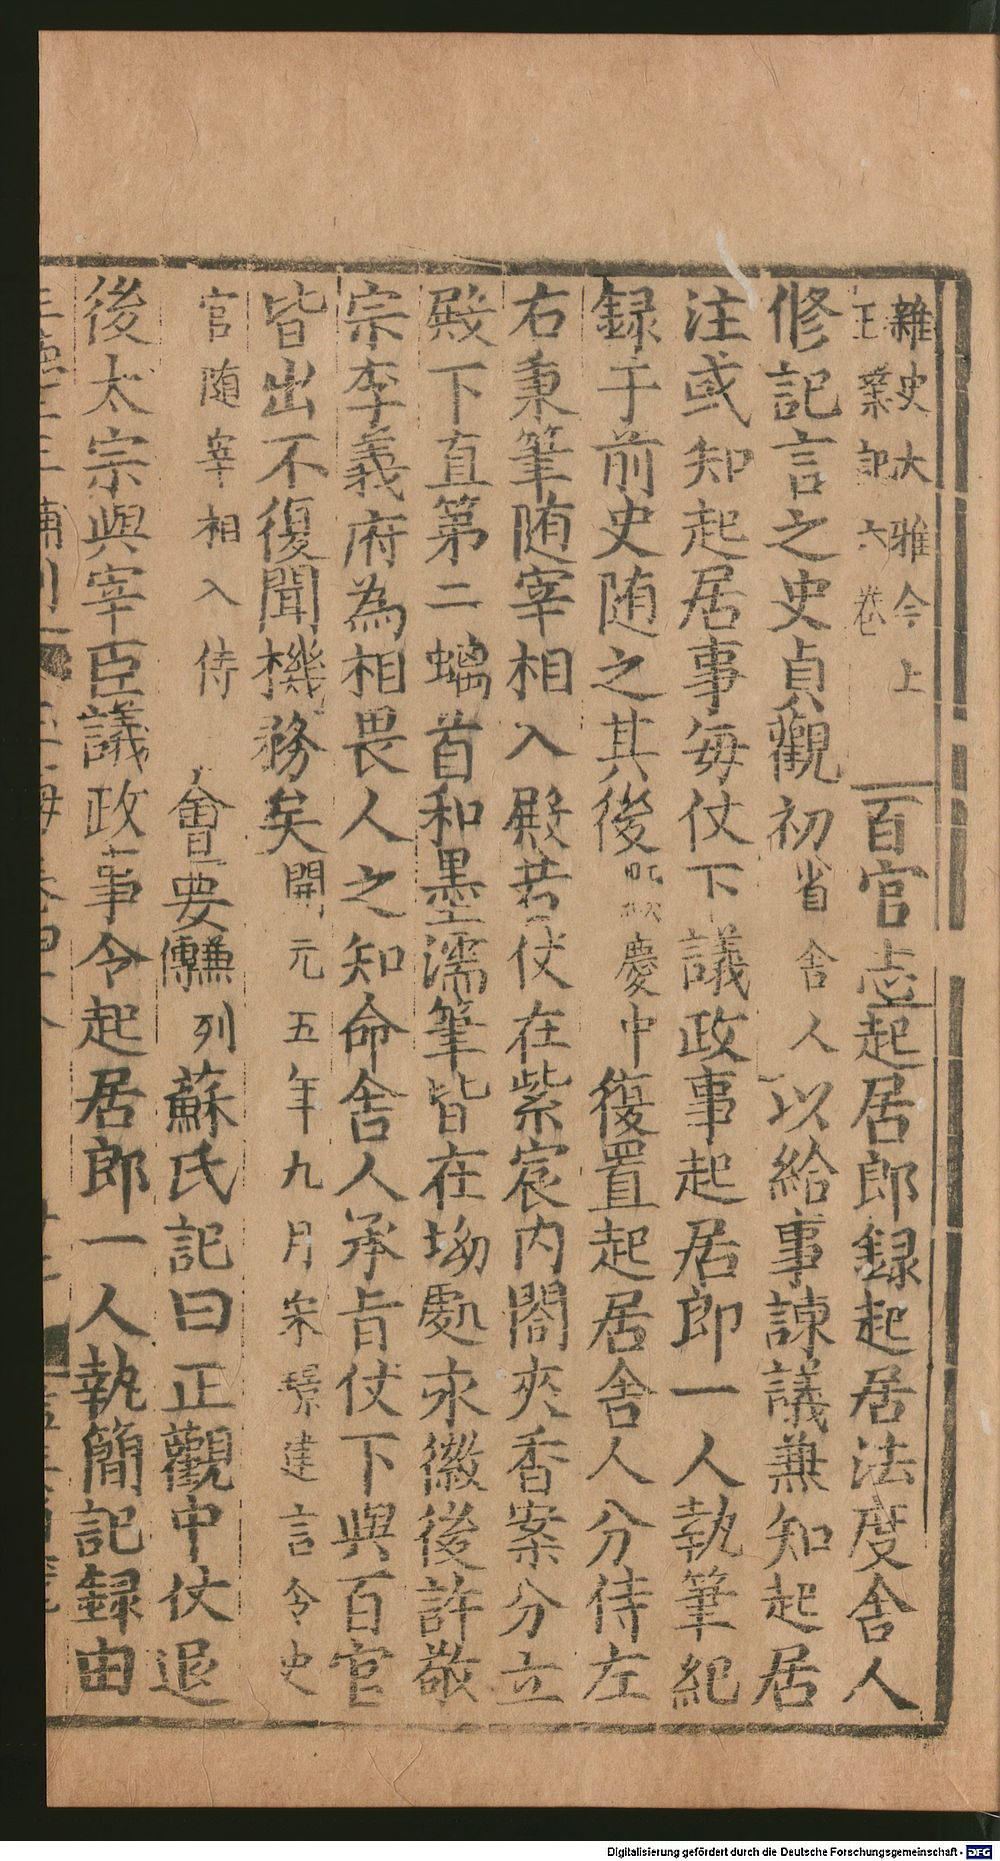 雜史大雅今上
王業記六卷
百官志起居郎録起居法度舍人
修記言之史貞觀初省舍人以給事諫議兼知起居
注或知起居事每仗下議政事起居郎一人執筆紀
録于前史随之其後慶中復置起居舍人分侍左
右秉筆随宰相入殿若仗在紫宸内閤夾香案分立
殿下直第二螭首和墨濡筆皆在坳處永徽後許敬
宗李義府為相畏人之知命舍人承旨仗下與百官
皆出不復聞機務矣開元五年九月宋璟建言令史
官随宰相入侍
會要
傳
兼列
蘇氏記曰正觀中仗退
後太宗與宰臣議政事令起居郎一人執簡記録由
Digitalisierung gefördert durch die Deutsche Forschungsgemeinschaft - DFG